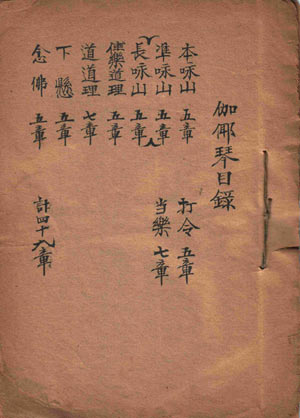 伽倻琴目錄
本咏山 五章 打令 五章
準咏山 五章 当樂 七章
長咏山 五章
樂道理 五章
道道理 七章
下懸 五章
念佛 五章 計四十八章